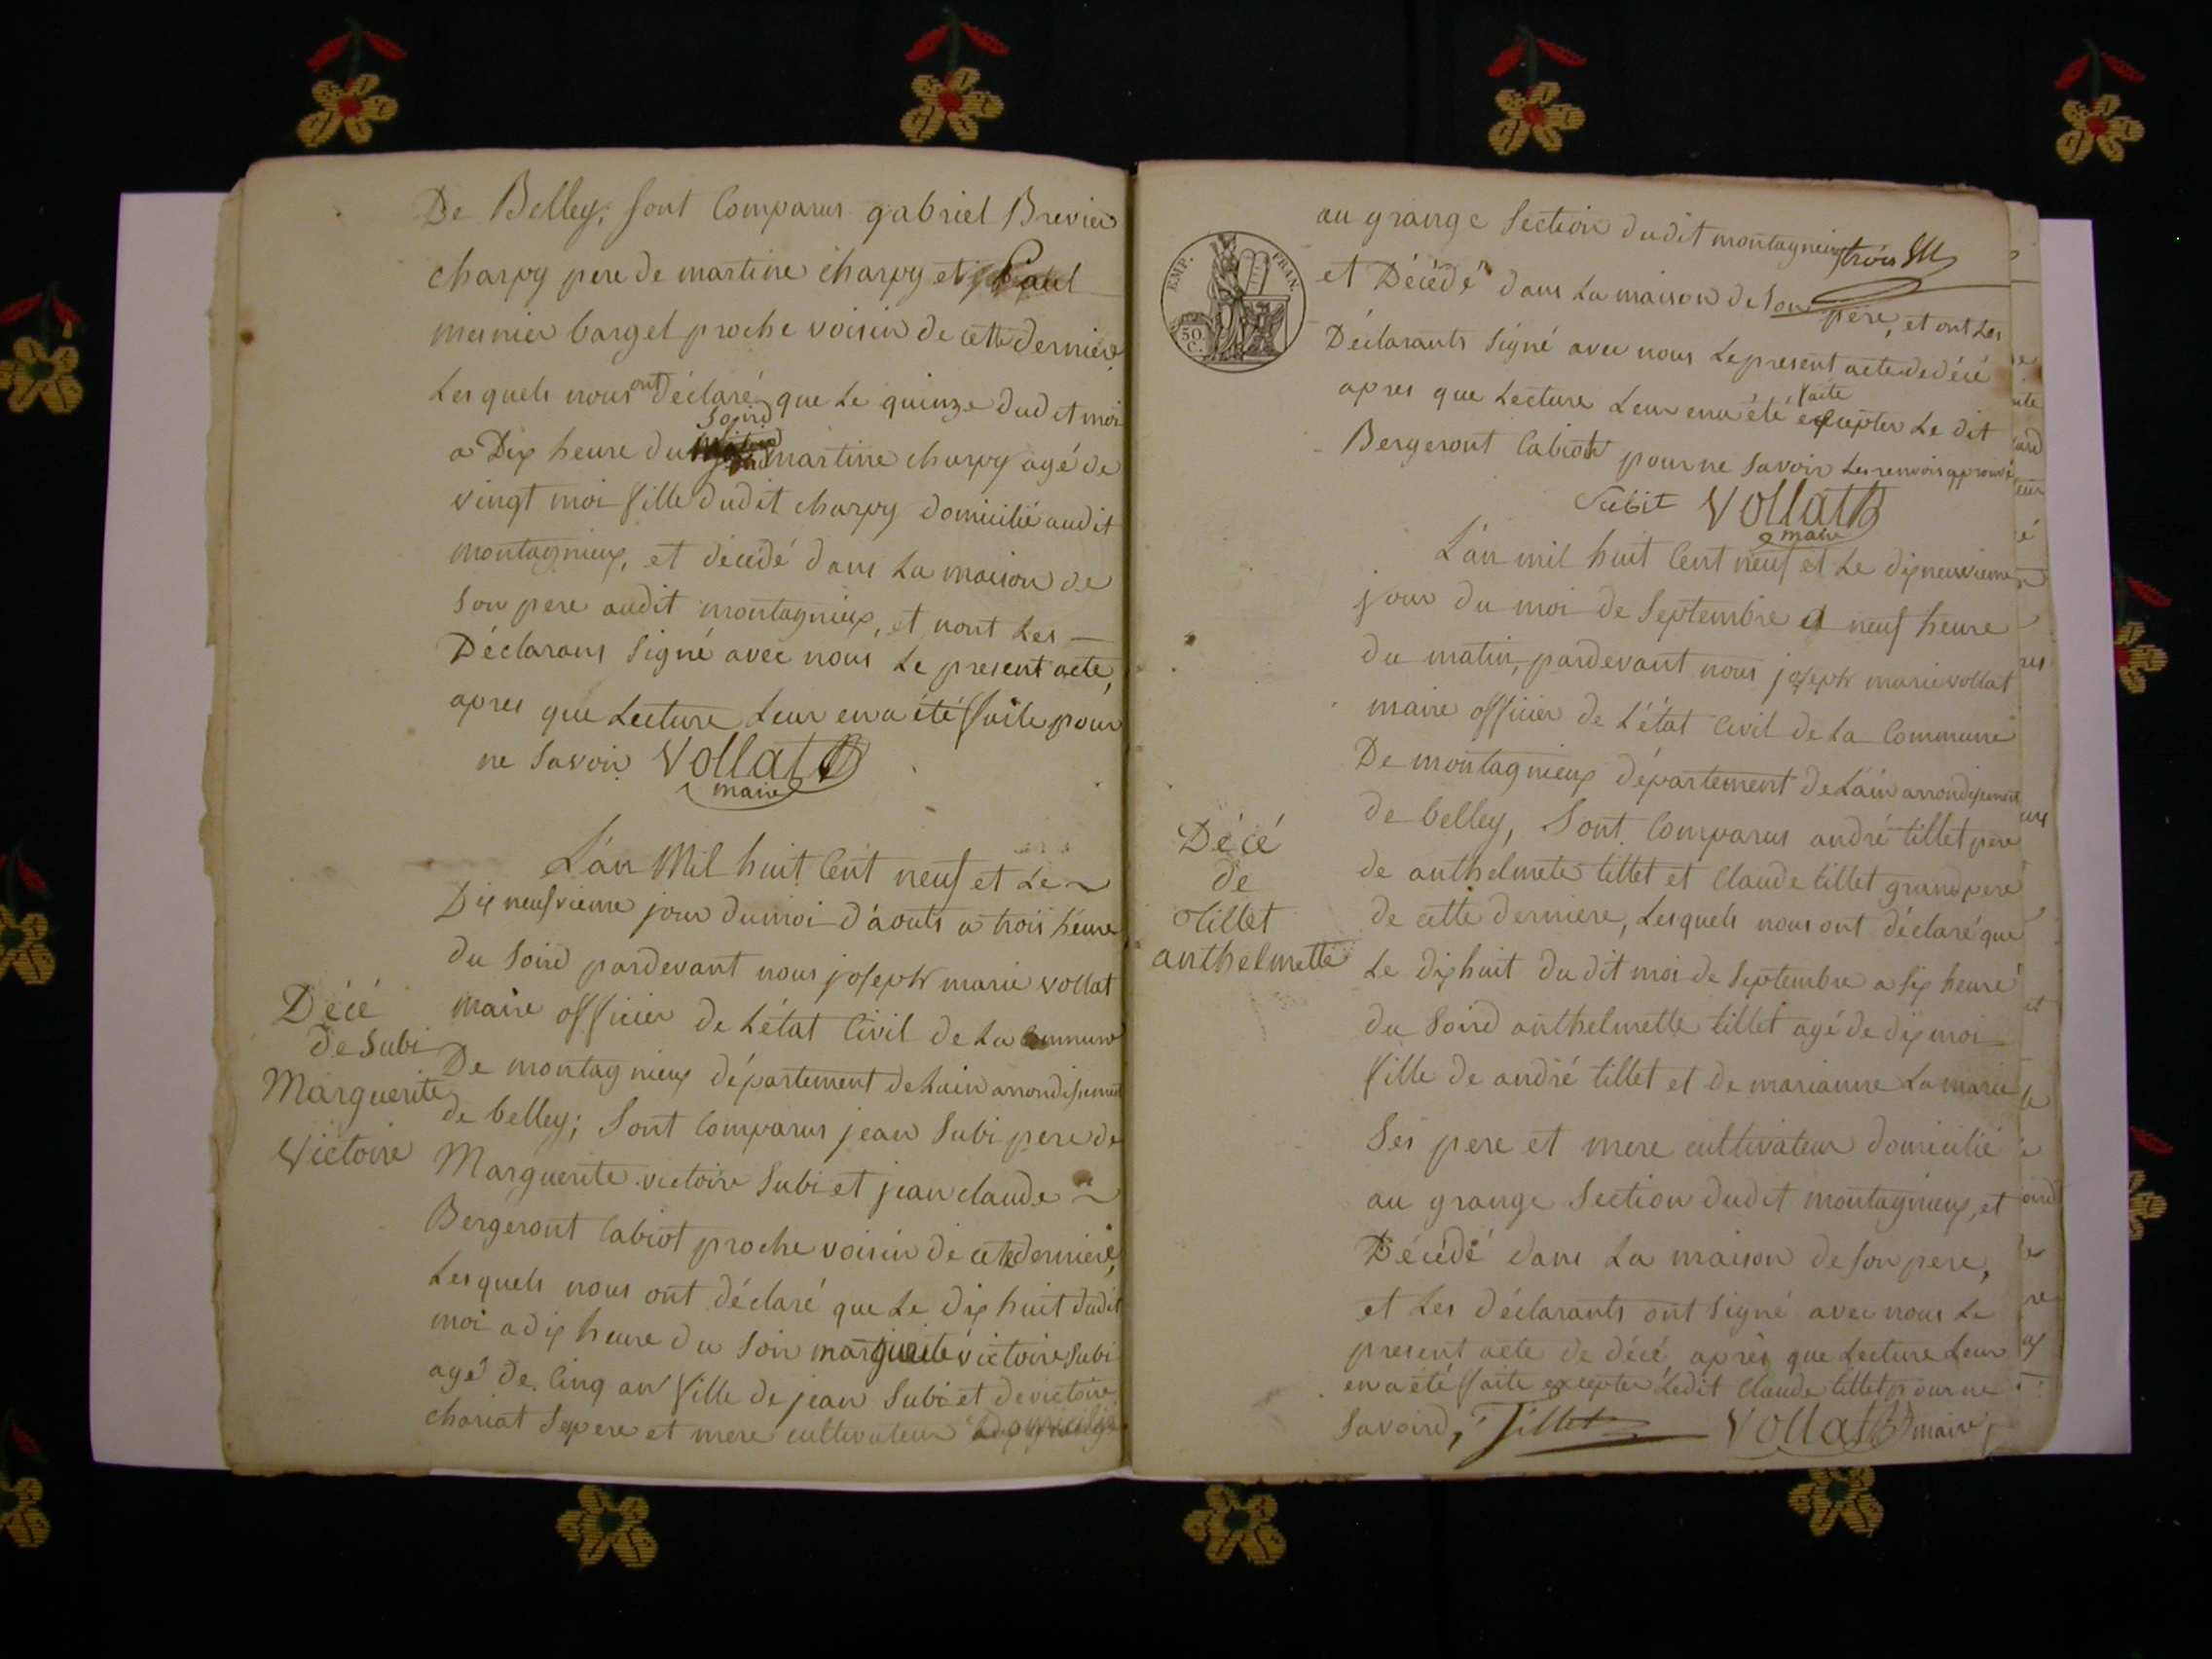 De Belley, sont Comparus gabriel Brevier
charpy pere de martine charpy et Paul
meunier bargel proche voisin de cette derniere
Lesquels nous ont Déclaré que Le quinze dudit moi
Soird
a Dix heure du martine charpy agé de
vingt moi fille dudit charpy domicilié audit
montagnieux, et décédé dans La maison de
Son pere audit montagnieux, et nont Les
Déclarans Signé avec nous Le present acte,
apres que Lecture Leur en a été faite pour
ne Savoir Vollat
maire
L'an Mil huit Cent neuf et Le
Dix neufvieme jour du moi d'aouts a trois heure
du Soird pardevant nous joseph marie vollat
maire officier de L'état Civil de La Commune
De montagnieux département de Lain arrondissement
de belley; Sont Comparus jean Subi pere de
Marguerite victoire Subi et jean claude
Bergeront Cabiot proche voisin de cette derniere,
Lesquels nous ont déclaré que Le dix huit dudit
moi a dix heure du Soir marguerite victoire Subi
agé de Cinq an fille de jean Subi et de victoire
chariat Ses pere et mere cultivateur
Décé
de Subi
Marguerite
Victoire
EMP. FRAN.
50
C.
au grange Section dudit montagnieux
et Décédé dans La maison de Son pere, et ont Les
Déclarants Signé avec nous Le present acte de décé
apres que Lecture Leur en a été faite excepter Le dit
Bergeront Cabiot pour ne Savoir Les renvois approuvé
Subit Vollat
maire
L'an mil huit Cent neuf et Le dix neuvieme
jour du moi de Septembre a neuf heure
du matin, pardevant nous joseph marie vollat
maire officier de L'état Civil de La Commune
De montagnieux département de Lain arrondissement
de belley, Sont Comparus andré tillet pere
de anthelmete tillet et Claude tillet grand pere
de cette derniere, Lesquels nous ont déclaré que
Le dix huit du dit moi de Septembre a six heure
du Soird anthelmette tillet agé de dix moi
fille de andré tillet et de marianne Lamarie
Ses pere et mere cultivateur domicilié
au grange Section dudit montagnieux, et
Décédé dans La maison de son pere,
et Les déclarants ont Signé avec nous Le
present acte de décé, après que Lecture Leur
en a été faite excepter Ledit Claude tillet pour ne
Savoird, Tillet Vollat maire
Décé
de
tillet
anthelmette